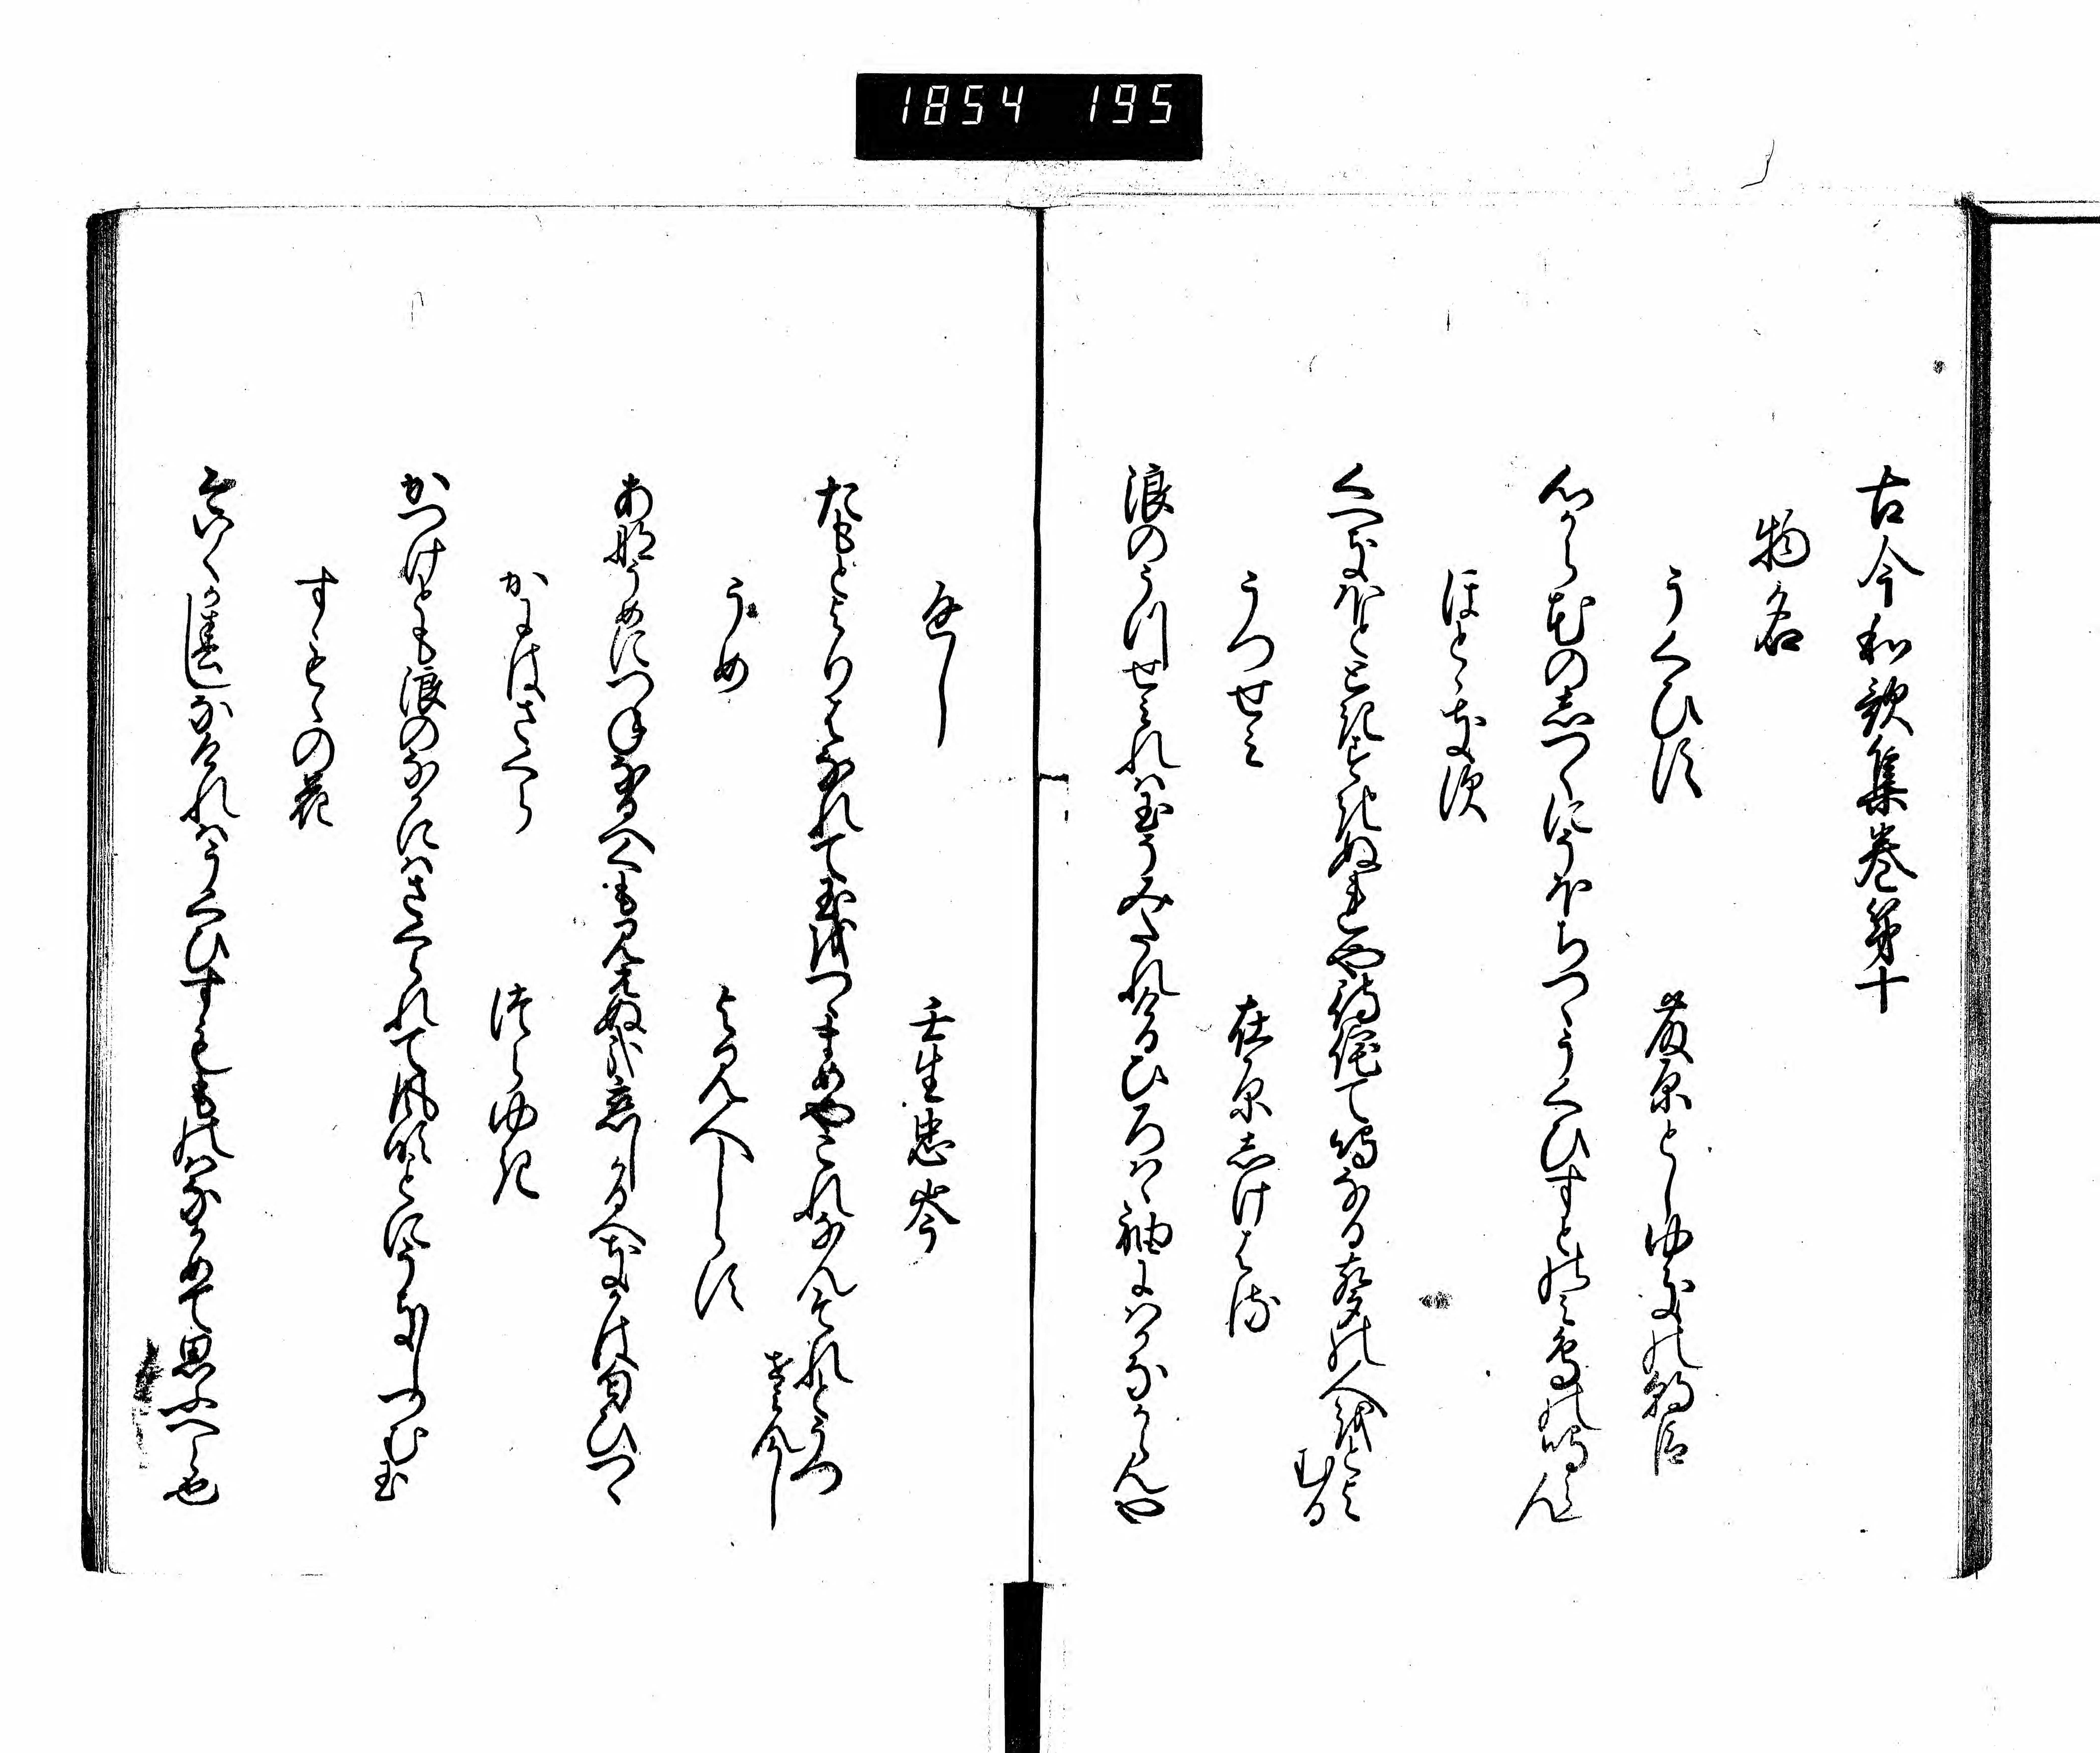 1854 195
古今和歌集巻第十
物名
うくひす
藤原としゆきの朝臣
心から花のしつくにそほちつゝうくひすとのみ鳥の鳴らん
ほとゝきす
くへきほとときすきぬれや待侘て鳴なる声の人をとよ
むる
うつせみ
在原しけはる
浪のうつせみれは玉そみたれけるひろはゝ袖にはかなからんや
返し
壬生忠岑
たもとよりはなれて玉をつゝまめやこれなんそれとうつ
せみんかし
うめ
よみ人しらす
あなうめにつねなるへくも見えぬ哉恋しかるへきかは匂ひつゝ
かにはさくら
つらゆき
かつけとも浪のなかにはさくられて風吹ことにうきしつむ玉
すもゝの花
今いくか春しなけれはうくひすももの はなかめて思ふへら也